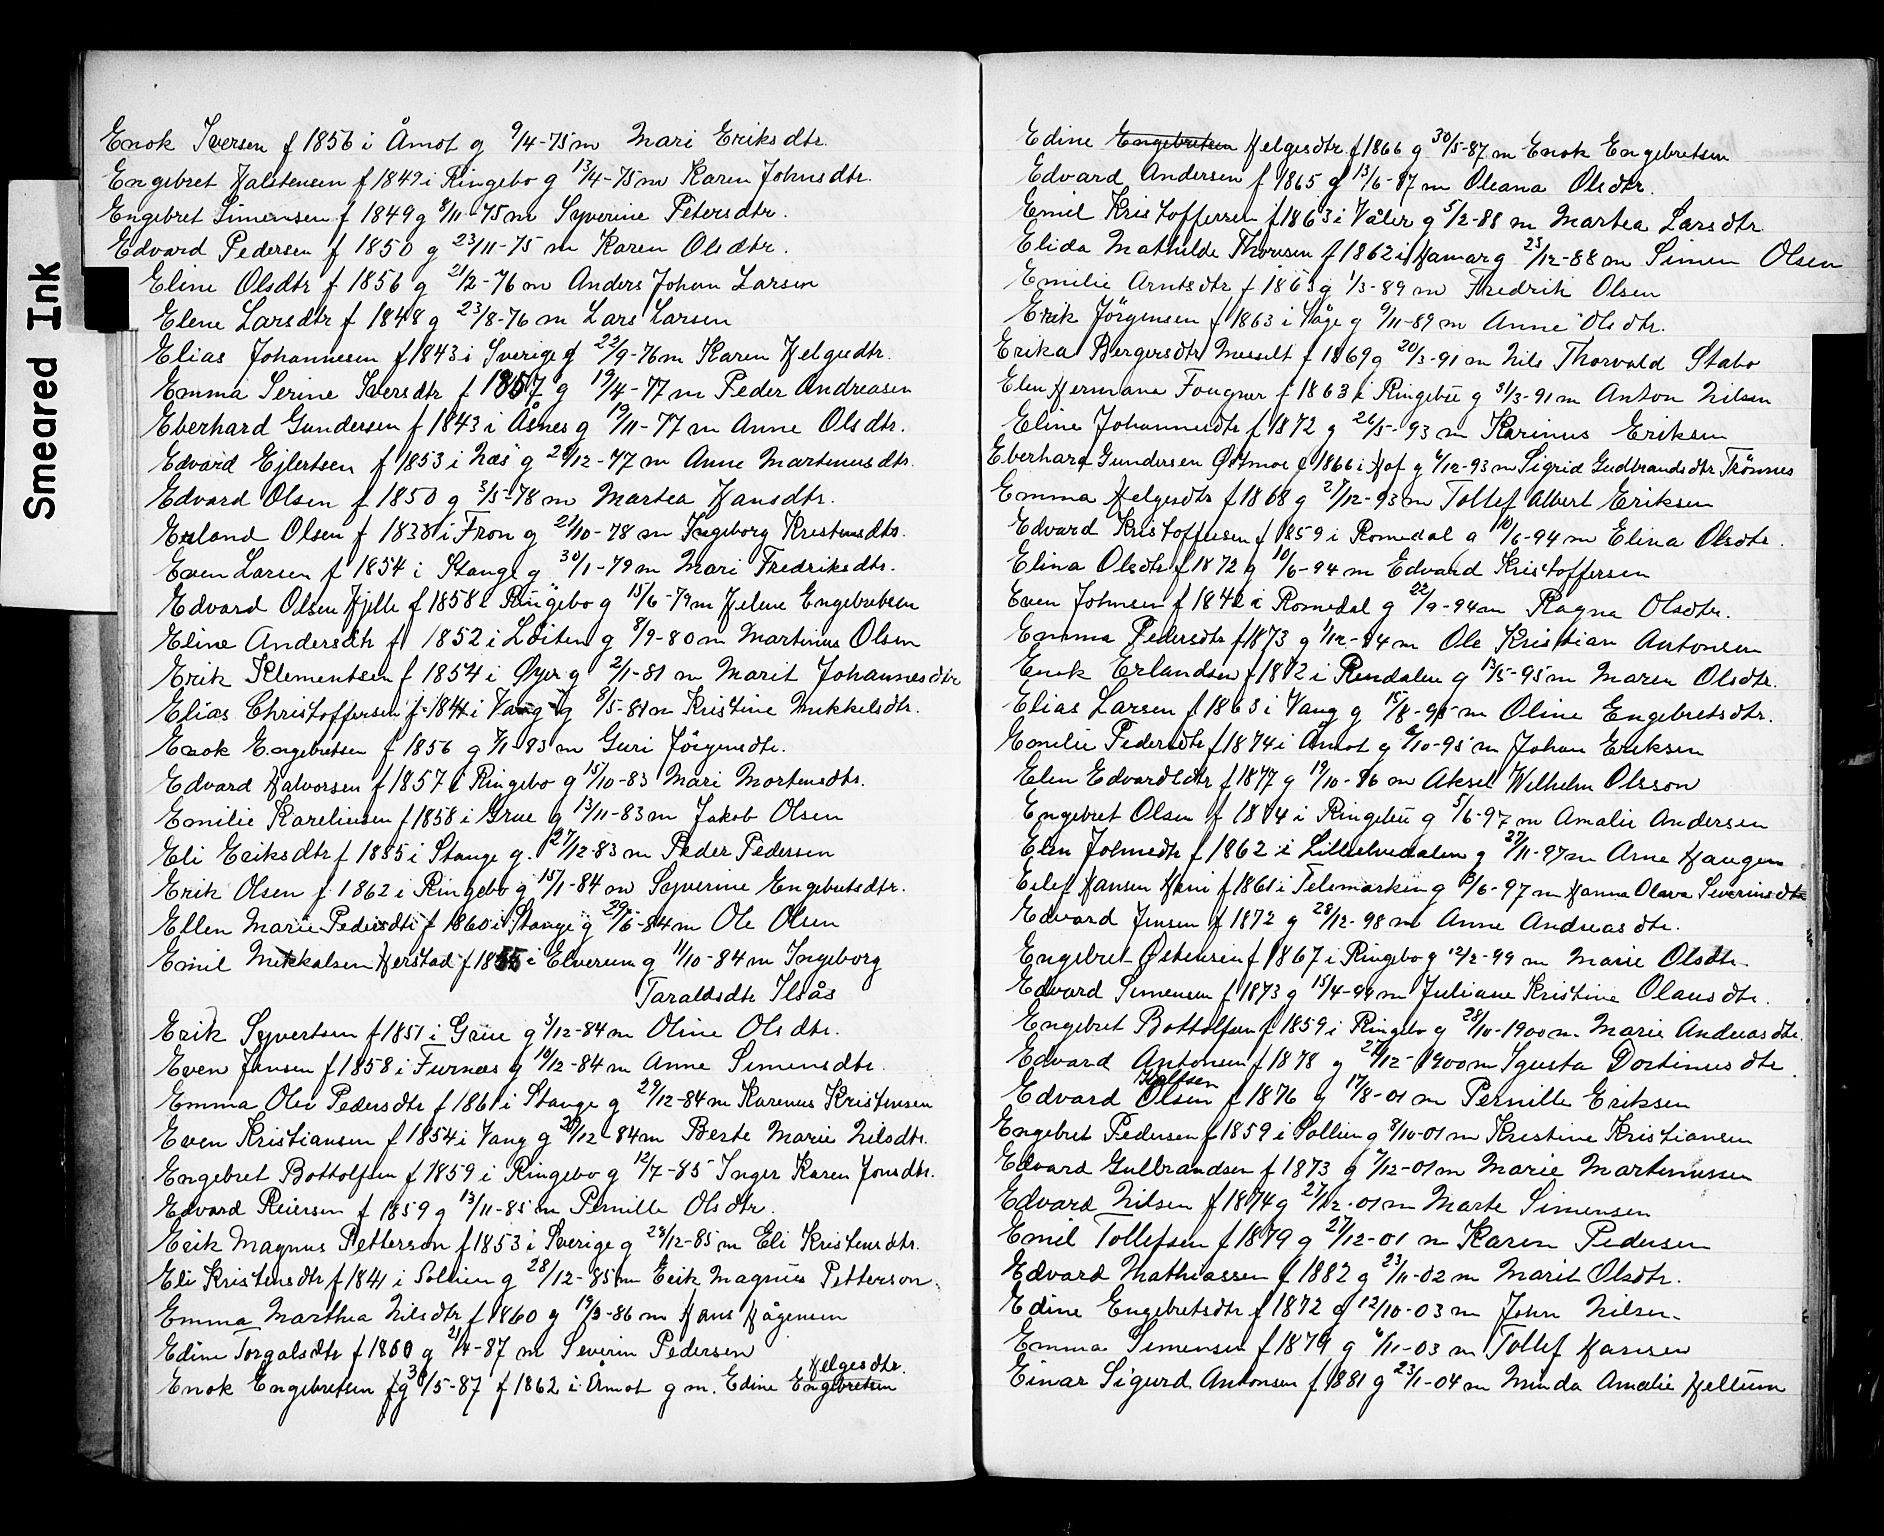 Smeared Ink
Enok Iversen f 1856 i Åmot g 9/4-75 m Mari Eriksdtr.
Engebret Halstensen f 1849 i Ringebo g 13/4-75 m Karen Johnsdtr.
Engebret Simensen f 1849 g 8/11-75 m Syverine Petersdtr.
Edvard Pedersen f 1850 g 23/11-75 m Karen Olsdtr.
Eline Olsdtr f 1856 g 21/2-76 m Anders Johan Larsen
Elene Larsdtr f 1848 g 23/8-76 m Lars Larsen
Elias Johannesen f 1843 i Sverige g 22/9-76 m Karen Helgesdtr.
Emma Serine Iversdtr f 1857 g 19/4-77 m Peder Andreasen
Eberhard Gundersen f 1843 i Åsnes g 19/11-77 m Anne Olsdtr.
Edvard Ejlertsen f 1853 i Næs g 28/12-77 m Anne Martinusdtr.
Edvard Olsen f 1850 g 3/5-78 m Martea Hansdtr.
Erland Olsen f 1838 i Fron g 21/10-78 m Ingeborg Kristensdtr.
Even Larsen f 1854 i Stange g 30/1-79 m Mari Fredriksdtr.
Edvard Olsen Hjelle f 1858 i Ringebo g 15/6-79 m Helene Engebretsen
Eline Andersdtr f 1852 i Löiten g 8/9-80 m Martinus Olsen
Erik Klementsen f 1854 i Øyer g 2/1-81 m Marit Johannesdtr
Elias Christoffersen f 1844 i Vang g 8/5-81 m Kristine Mikkelsdtr.
Enok Engebretsen f 1856 g 7/1-83 m Guri Jörgensdtr.
Edvard Halvorsen f 1857 i Ringebo g 15/10-83 Mari Mortensdtr.
Emilie Karelinsen f 1858 i Grue g 13/11-83 m Jakob Olsen
Eli Eriksdtr f 1855 i Stange g. 27/12-83 m Peder Pedersen
Erik Olsen f 1862 i Ringebo g 15/1-84 m Syverine Engebretsdtr.
Ellen Marie Pedersdtr f 1860 i Stange g 29/6-84 m Ole Olsen
Emil Mikkalsen Herstad f 1855 i Elverum g 11/10-84 m Ingeborg
Taraldsdtr Ilsås
Erik Syvertsen f 1851 i Grue g 3/12-84 m Oline Olsdtr.
Even Jensen f 1858 i Furnæs g 19/12-84 m Anne Simensdtr.
Emma Olea Pedersdtr f 1861 i Stange g 29/12-84 m Karenus Kristensen
Even Kristiansen f 1854 i Vang g 28/12-84 m Berte Marie Nilsdtr.
Engebret Bottolfsen f 1859 i Ringebo g 12/7-85 Inger Karen Jonsdtr.
Edvard Reiersen f 1859 g 13/11-85 m Pernille Olsdtr.
Erik Magnus Petterson f 1853 i Sverige g 28/12-85 m Eli Kristensdtr.
Eli Kristensdtr f 1841 i Sollien g 28/12-85 m Erik Magnus Petterson.
Emma Marthea Nilsdtr f 1860 g 19/3-86 m Hans Hågensen
Edine Torgalsdtr f 1860 g 21/4-87 m Severin Pedersen
Helgesdtr.
Enok Engebretsen f g 30/5-87 f 1862 i Åmot g m. Edine Engebretsen
Edine Engebretsen Helgesdtr f 1866 g 30/5-87 m Enok Engebretsen
Edvard Andersen f 1865 g 13/6-87 m Oleana Olsdtr.
Emil Kristoffersen f 1863 i Våler g 5/2-88 m Martea Larsdtr.
Elida Mathilde Thoresen f 1862 i Hamar g 23/12-88 m Simen Olsen
Emilie Arntsdtr f 1865 g 1/3-89 m Fredrik Olsen
Erik Jörgensen f 1863 i Våge g 9/11-89 m Anne Olsdtr.
Erika Bergersdtr Messelt f 1869 g 20/3-91 m Nils Thorvald Stabo
Elen Hermane Fougner f 1863 i Ringebu g 31/3-91 m Anton Nilsen
Eline Johannesdtr f 1872 g 26/5-93 m Karinus Eriksen
Eberhard Gundersen Østmoe f 1866 i Hof g 6/12-93 m Sigrid Gudbrandsdtr Trönnes
Emma Helgesdtr f 1868 g 27/12-93 m Tollef Albert Eriksen
Edvard Kristoffersen f 1859 i Romedal g 10/6-94 m Elina Olsdtr.
Elina Olsdtr f 1872 g 10/6-94 m Edvard Kristoffersen
Even Johnsen f 1842 i Romedal g 22/9-94 m Ragna Olsdtr.
Emma Pedersdtr f 1873 g 1/12-94 m Ole Kristian Antonsen
Enok Erlandsen f 1872 i Rendalen g 13/5-95 m Maren Olsdtr.
Elias Larsen f 1863 i Vang g 15/8-95 m Oline Engebretsdtr.
Emilie Pedersdtr f 1874 i Åmot g 6/10-95 m Johan Eriksen
Elen Edvardsdtr f 1877 g 19/10-96 m Aksel Wilhelm Olsson
Engebret Olsen f 1874 i Ringebu g 5/6-97 m Amalie Andersen
Elen Johnsdtr f 1862 i Lilleelvedalen g 27/11-97 m Arne Haugen
Eilef Hansen Kani f 1861 i Telemarken g 8/6-97 m Hanna Olava Severinsdtr
Edvard Jensen f 1872 g 28/12-98 m Anne Andreasdtr.
Engebret Østensen f 1867 i Ringebo g 12/2-99 m Marie Olsdtr.
Edvard Simensen f 1873 g 15/4-99 m Juliane Kristine Olausdtr.
Engebret Bottolfsen f 1859 i Ringebo g 28/10-1900 m. Marie Andreasdtr.
Edvard Antonsen f 1878 g 27/12-1900 m Igusta Dortinusdtr.
Edvard Olsen f 1876 g 17/8-01 m Pernille Eriksen
Engebret Pedersen f 1859 i Sollien g 8/10-01 m Kristine Kristiansen
Edvard Gulbrandsen f 1873 g 7/12-01 m Marie Martinussen
Edvard Nilsen f 1874 g 27/12-01 m Marte Simensen
Emil Tollefsen f 1879 g 27/12-01 m Karen Pedersen
Edvard Mathiassen f 1882 g 23/11-02 m Marit Olsdtr.
Edine Engebretsdtr f 1872 g 12/10-03 m John Nilsen.
Emma Simensen f 1879 g 6/11-03 m Tollef Hansen
Einar Sigurd Antonsen f 1881 g 23/1-04 m Minda Amalie Hellum